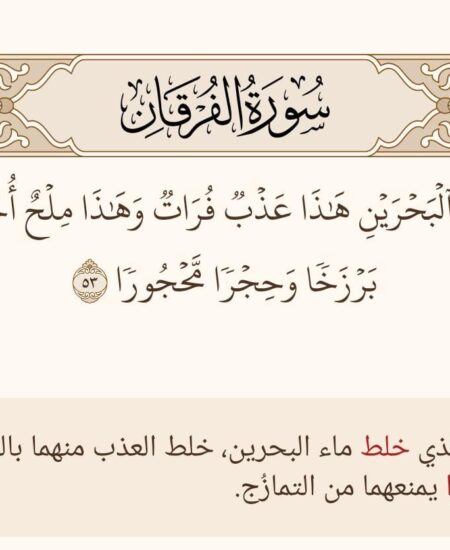 سُورَةُ الفُرۡقَانِ
ٱلۡبَحۡرَيۡنِ هَٰذَا عَذۡبٞ فُرَاتٞ وَهَٰذَا مِلۡحٌ
بَرۡزَخٗا وَحِجۡرٗا مَّحۡجُورٗا ٥٣
خلط ماء البحرين، خلط العذب منهما
يمنعهما من التمازُج.